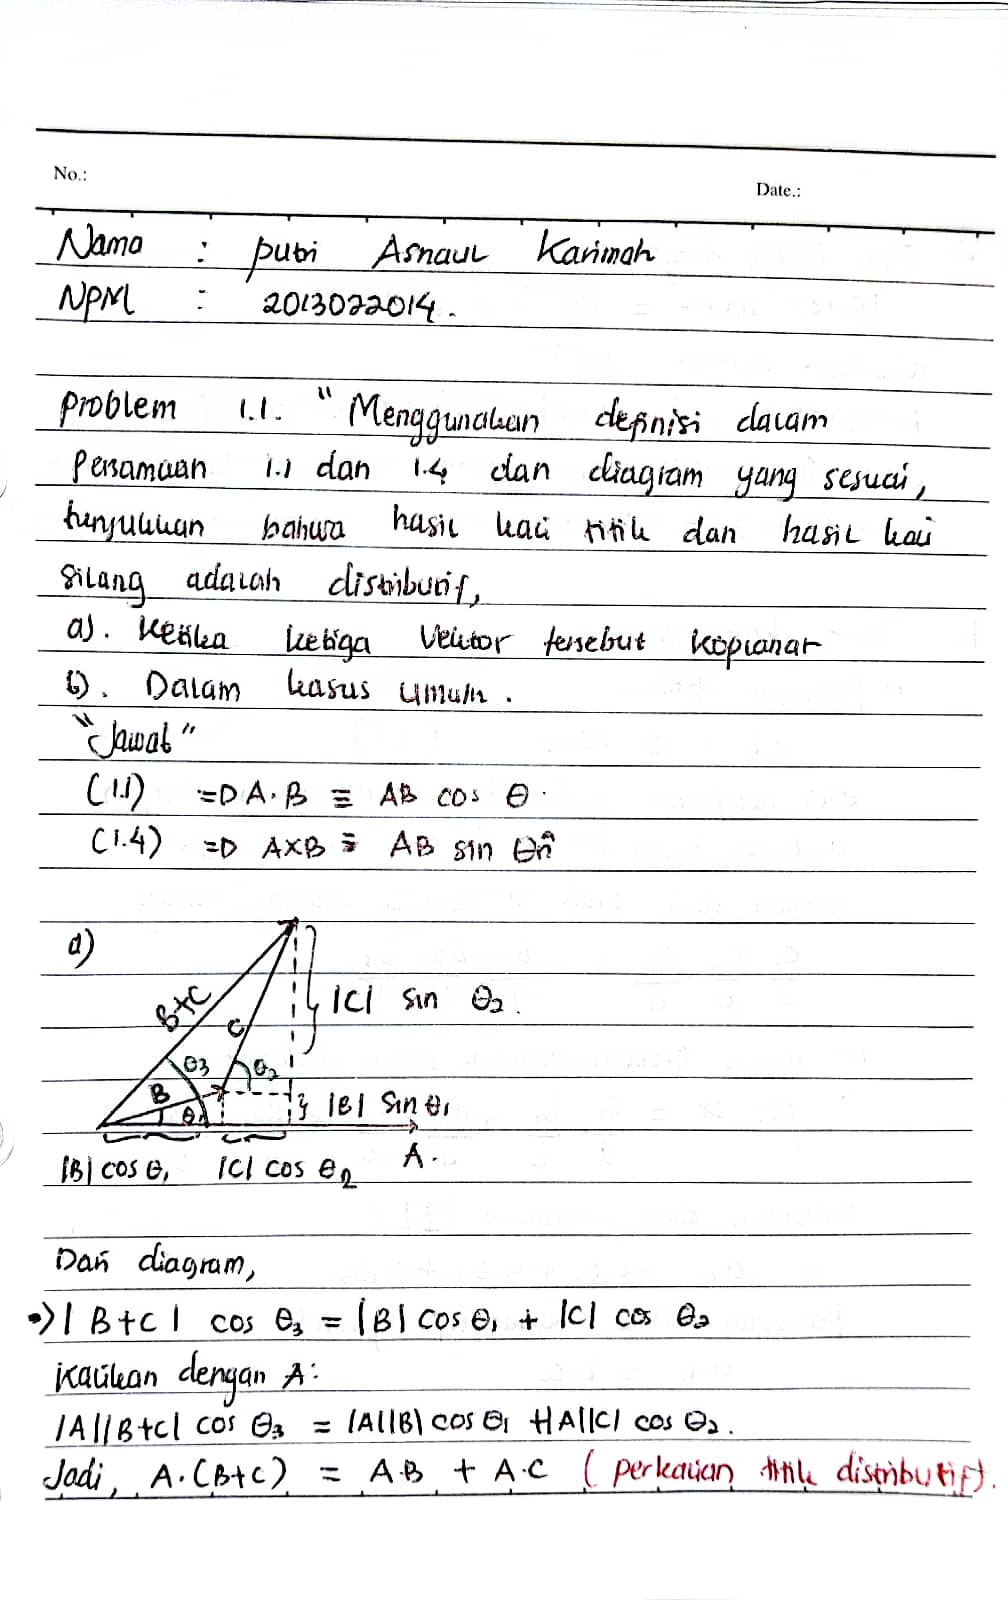 No.:
Date.:
Nama : Putri Asnaul Karimah
NPM : 2013022014.
Problem 1.1. "Menggunakan definisi dalam
Persamaan 1.1 dan 1.4 dan diagram yang sesuai,
tunjukkan bahwa hasil kali titik dan hasil kali
silang adalah distributif,
a). Ketika ketiga Vektor tersebut koplanar
b). Dalam kasus umum.
"Jawab"
(1.1) => A·B ≡ AB cos θ.
(1.4) => A×B ≡ AB sin θ n̂
a)
B+C
C
|C| sin θ₂.
θ3
θ₂
B
θ₁
|B| sin θ₁
|B| cos θ₁ |C| cos θ₂ A.
Dari diagram,
•>| B+C | cos θ₃ = |B| cos θ₁ + |C| cos θ₂
Kalikan dengan A:
|A||B+C| cos θ₃ = |A||B| cos θ₁ + |A||C| cos θ₂.
Jadi, A·(B+C) = A·B + A·C (perkalian titik distributif).